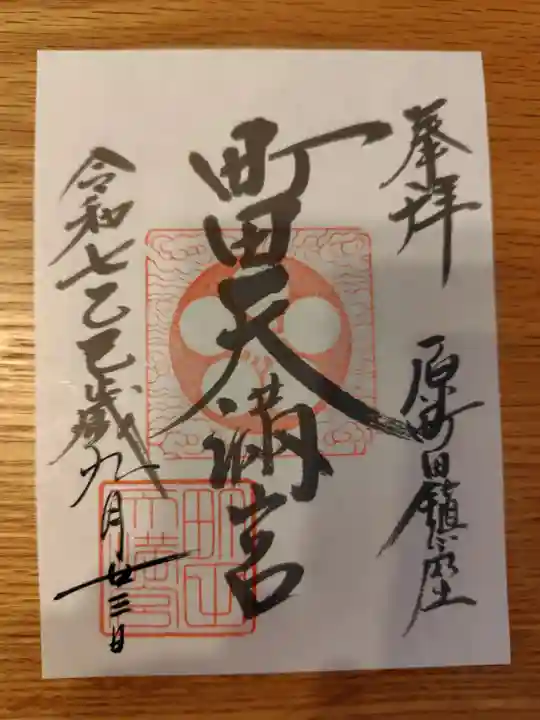 奉拝
原町田鎮座
町田天満宮
令和七乙巳歳九月廿三日
町田天満宮